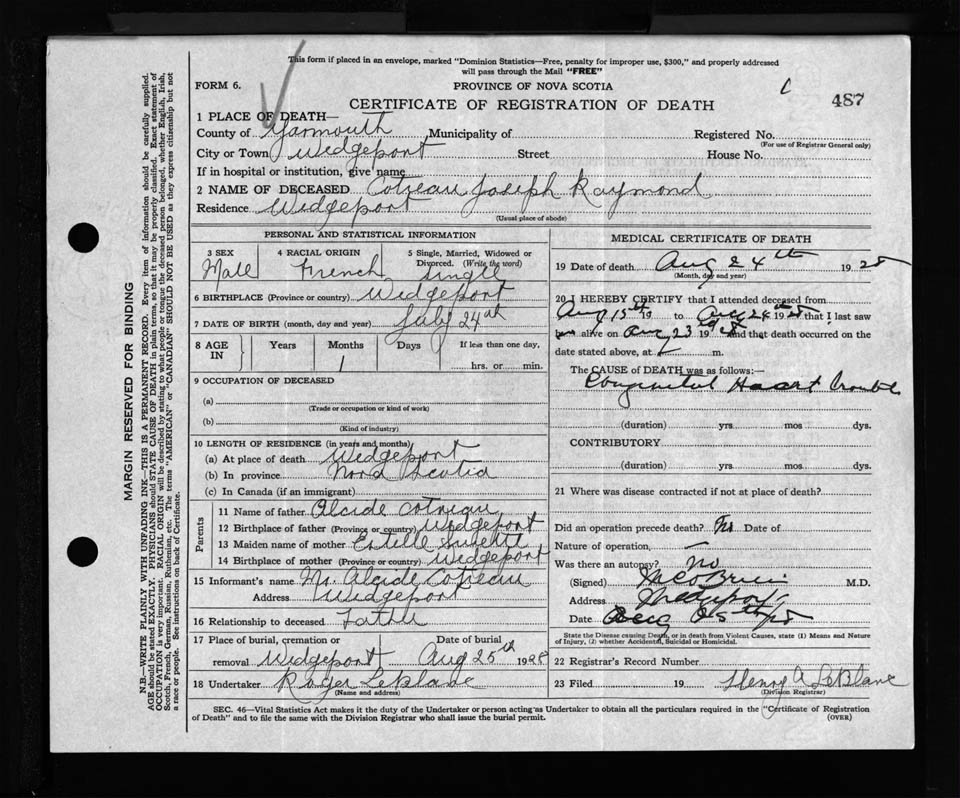 This form if placed in an envelope, marked "Dominion Statistics—Free, penalty for improper use, $300," and properly addressed
will pass through the Mail "FREE"
FORM 6.
PROVINCE OF NOVA SCOTIA
C
487
CERTIFICATE OF REGISTRATION OF DEATH
1 PLACE OF DEATH—
County of Yarmouth Municipality of Registered No.
(For use of Registrar General only)
City or Town Wedgeport Street House No.
If in hospital or institution, give name
2 NAME OF DECEASED Cotreau Joseph Raymond
Residence Wedgeport
(Usual place of abode)
PERSONAL AND STATISTICAL INFORMATION
3 SEX 4 RACIAL ORIGIN 5 Single, Married, Widowed or
Divorced. (Write the word)
Male French single
6 BIRTHPLACE (Province or country) Wedgeport
7 DATE OF BIRTH (month, day and year) July 24th
8 AGE IN Years Months Days If less than one day,
1 hrs. or min.
9 OCCUPATION OF DECEASED
(a)
(Trade or occupation or kind of work)
(b)
(Kind of industry)
10 LENGTH OF RESIDENCE (in years and months)
(a) At place of death Wedgeport
(b) In province Nova Scotia
(c) In Canada (if an immigrant)
Parents
11 Name of father Alcide Cotreau
12 Birthplace of father (Province or country) Wedgeport
13 Maiden name of mother Estelle
14 Birthplace of mother (Province or country) Wedgeport
15 Informant's name Mr. Alcide Cotreau
Address Wedgeport
16 Relationship to deceased Father
17 Place of burial, cremation or Date of burial
removal Wedgeport Aug 25th 1928
18 Undertaker Roger LeBlanc
(Name and address)
MEDICAL CERTIFICATE OF DEATH
19 Date of death Aug 24th 1928
(Month, day and year)
20 I HEREBY CERTIFY that I attended deceased from
Aug 15th 19 to Aug 24 1928 that I last saw
him alive on Aug 23 1928 and that death occurred on the
date stated above, at m.
The CAUSE of DEATH was as follows:—
Congenital Heart trouble
(duration) yrs. mos dys.
CONTRIBUTORY
(duration) yrs. mos dys.
21 Where was disease contracted if not at place of death?
Did an operation precede death? No Date of
Nature of operation, —
Was there an autopsy? no
(Signed) O'Brien M.D.
Address Wedgeport
Date Aug 25th 28
State the Disease causing Death, or in death from Violent Causes, state (1) Means and Nature
of Injury, (2) whether Accidental, Suicidal or Homicidal.
22 Registrar's Record Number
23 Filed 19 Henry A LeBlanc
(Division Registrar)
SEC. 46—Vital Statistics Act makes it the duty of the Undertaker or person acting as Undertaker to obtain all the particulars required in the "Certificate of Registration
of Death" and to file the same with the Division Registrar who shall issue the burial permit.
(OVER)
MARGIN RESERVED FOR BINDING
N.B.—WRITE PLAINLY WITH UNFADING INK—THIS IS A PERMANENT RECORD. Every item of information should be carefully supplied.
AGE should be stated EXACTLY. PHYSICIANS should STATE CAUSE OF DEATH in plain terms, so that it may be properly classified. Exact statement of
OCCUPATION is very important. RACIAL ORIGIN will be described by stating to what people or tongue the deceased person belonged, whether English, Irish,
Scotch, French, German, Russian, Ruthenian, etc. The terms "AMERICAN" or "CANADIAN" SHOULD NOT BE USED as they express citizenship but not
a race or people. See instructions on back of Certificate.